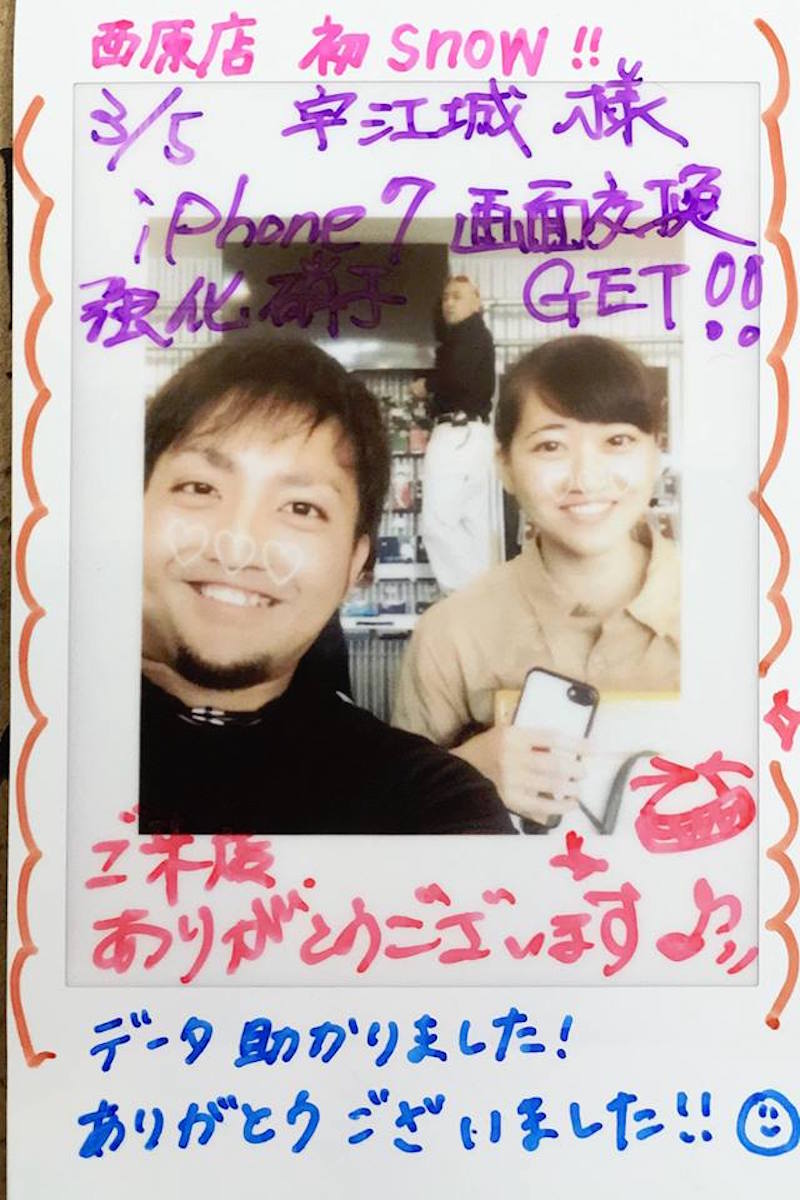 西原店 初snow!!
3/5 宇江城 様
iPhone7 画面交換
強化硝子 GET!!
ご来店
ありがとうございます♪
データ助かりました!
ありがとうございました!!